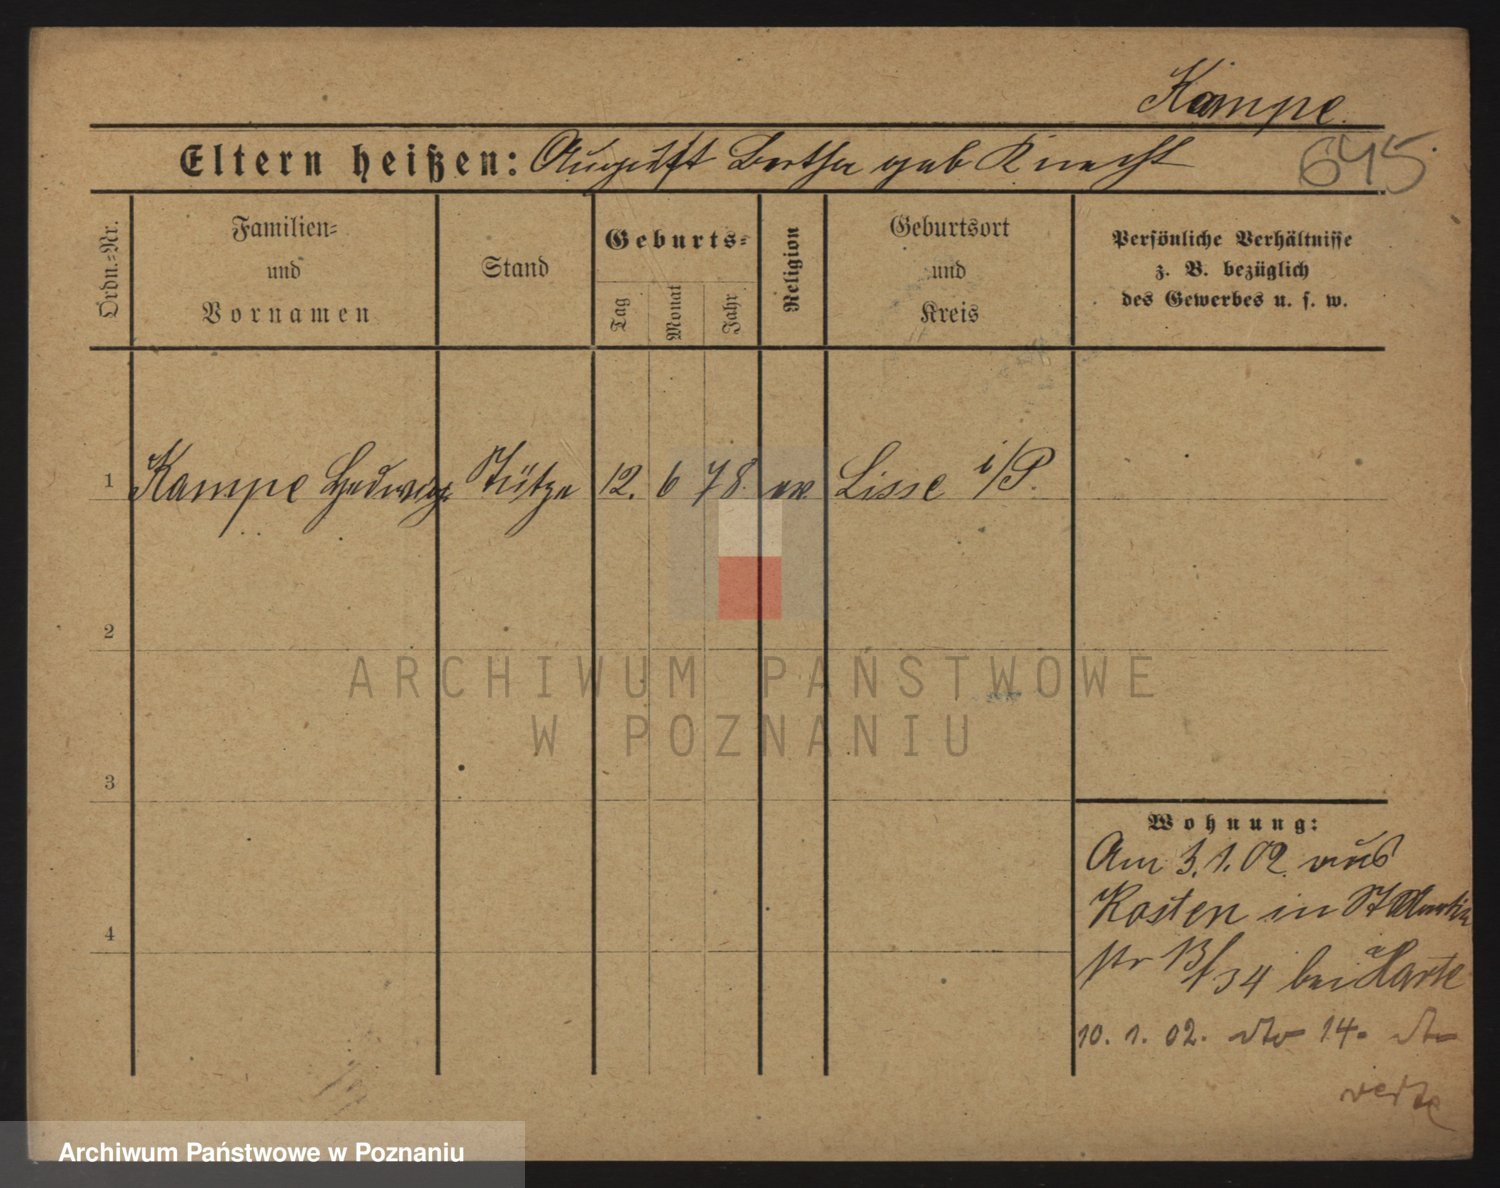 Kampe.
Eltern heißen: August Bertha geb Knecht
645
Ordn.-Nr.
Familien-
und
Vornamen
Stand
Geburts-
Tag
Monat
Jahr
Religion
Geburtsort
und
Kreis
Persönliche Verhältnisse
z. B. bezüglich
des Gewerbes u. s. w.
1 Kampe Hedwig Stütze 12. 6 78. ev. Lisse i/P.
2
ARCHIWUM PAŃSTWOWE
W POZNANIU
3
Wohnung:
Am 3.1.02. aus
Kosten in St Martin
4
str 13/34 bei Harte
10. 1. 02. dto 14.
Archiwum Państwowe w Poznaniu